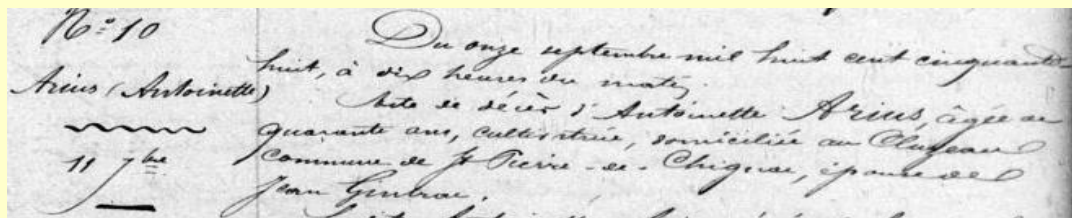 N.º 10
Arius (Antoinette)
11 7bre
Du onze septembre mil huit cent cinquante-
huit, à dix heures du matin.
Acte de décès d'Antoinette Arius, âgée de
quarante ans, cultivatrice, domiciliée au Cluzeau
commune de St Pierre-de-Chignac, épouse de
Jean